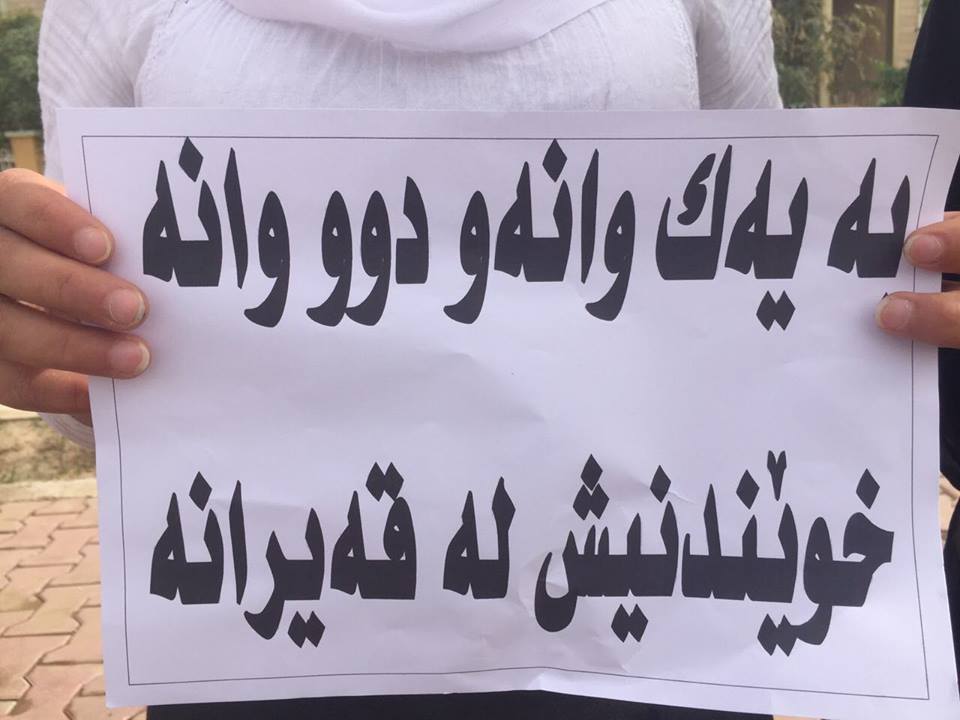 بە یەك وانەو دوو وانە
خوێندنیش لە قەیرانە